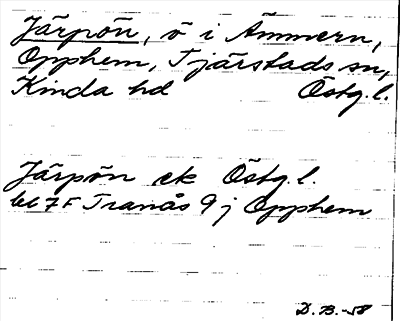 Järpön, ö i Ämmern,
Opphem, Tjärstads sn,
Kinda hd Östg.l.
Järpön ek Östg.l.
bl 7F Tranås 9j Opphem
D.B.-58